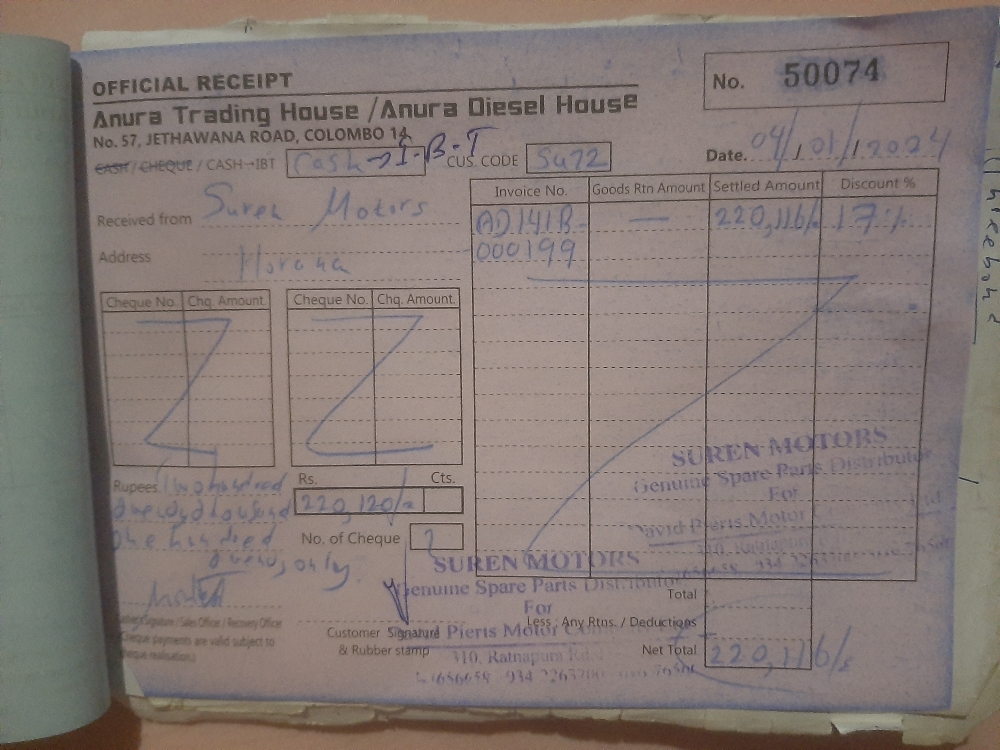 OFFICIAL RECEIPT
No. 50074
Anura Trading House / Anura Diesel House
No. 57, JETHAWANA ROAD, COLOMBO 14
CASH / CHEQUE / CASH→IBT Cash → I-B-T CUS. CODE Su72
Date. 04/01/2024
Received from Suren Motors
Address Horana
Invoice No. Goods Rtn Amount Settled Amount Discount %
AD141B- — 220,116/= 17%
000199
Cheque No. Chq. Amount. Cheque No. Chq. Amount.
Rupees. Two hundred
thousand
one hundred
only.
Rs. Cts.
220,120/=
No. of Cheque
SUREN MOTORS
Genuine Spare Parts Distributor
For
David Pieris Motor
310, Ratnapura
SUREN MOTORS
Genuine Spare Parts Distributor
For
Pieris Motor
310, Ratnapura Rd.
Total
Less : Any Rtns. / Deductions
Net Total 220,116/=
Customer Signature
& Rubber stamp
Signature / Sales Officer / Recovery Officer
Cheque payments are valid subject to
cheque realisation.)